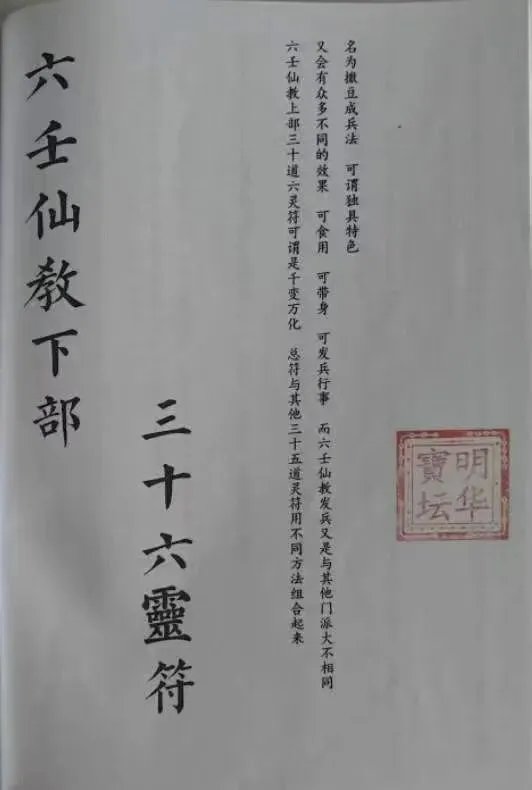 六壬仙教下部
三十六靈符
六壬仙教上部三十道六灵符可谓是千变万化 总符与其他三十五道灵符用不同方法组合起来
又会有众多不同的效果 可食用 可带身 可发兵行事 而六壬仙教发兵又是与其他门派大不相同
名为撒豆成兵法 可谓独具特色
明华
寶坛